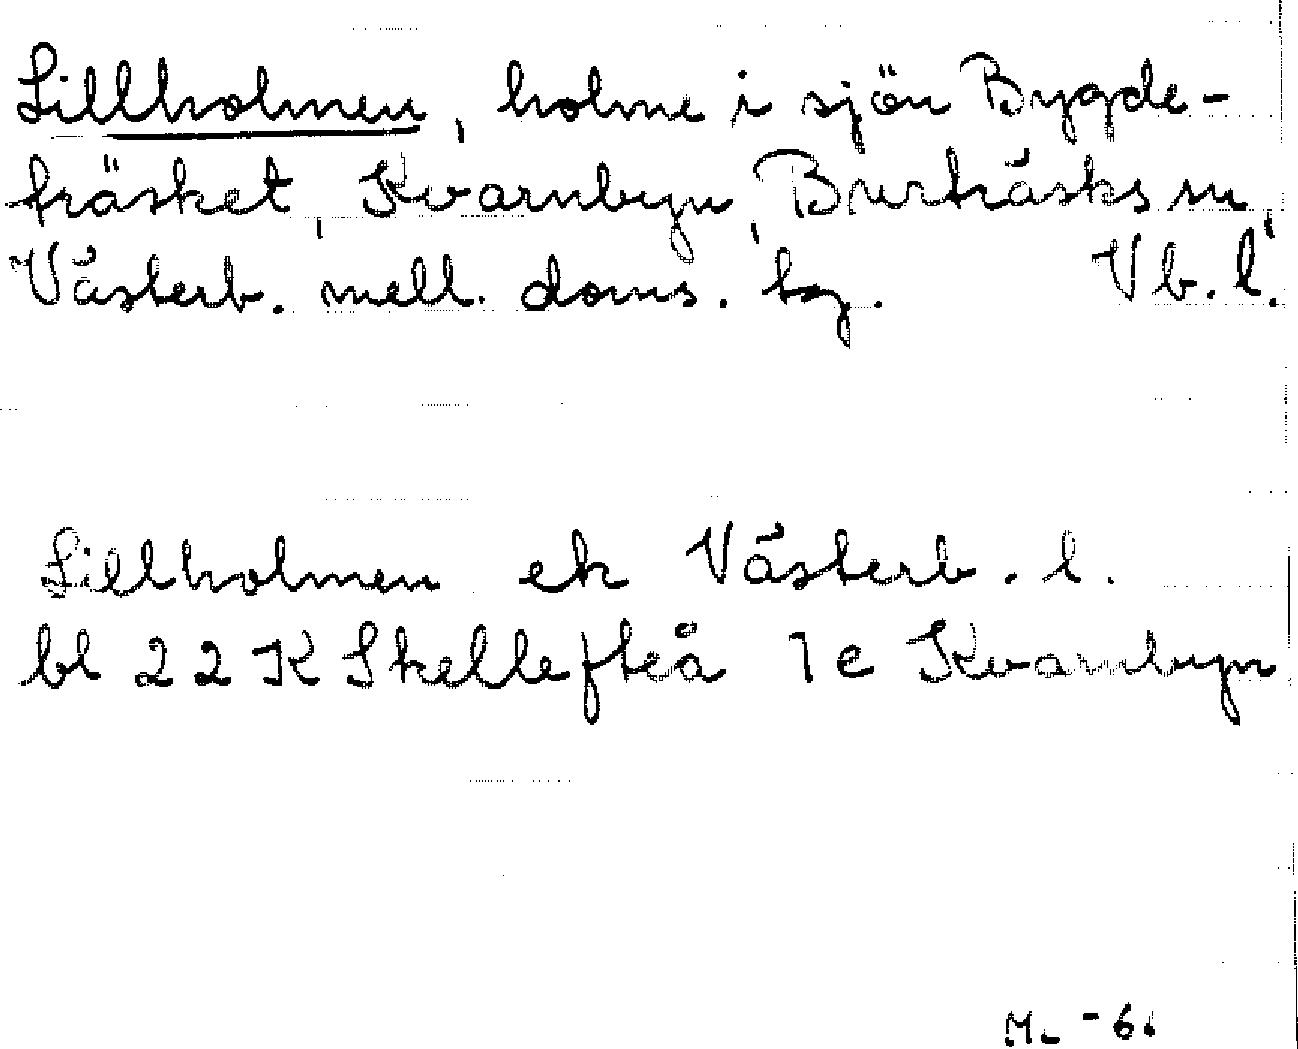 Lillholmen, holme i sjön Bygde-
träsket, Kvarnbyn, Burträsks sn,
Västerb. mell. doms. tg. Vb. l.
Lillholmen ek Västerb. l.
bl 22 K Skellefteå 1c Kvarnbyn
M. -6.